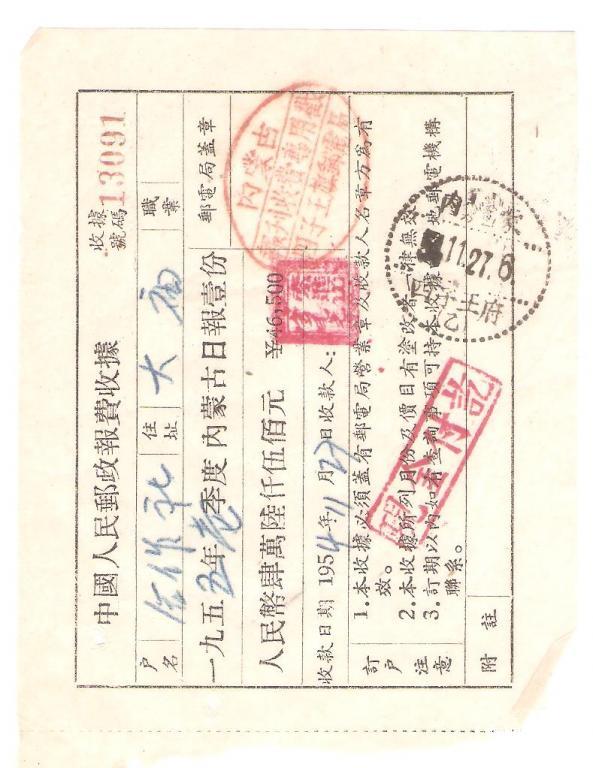 中國人民郵政報費收據
收據號碼 13091
戶名 合作社 住址 大廟 職業
一九五五年 季度內蒙古日報壹份
郵電局蓋章
人民幣肆萬陸仟伍佰元 ¥46,500
收款日期 1954年11月27日收款人:
訂戶注意
1.本收據必須蓋有郵電局營業章及收款人名章方為有
效。
2.本收據所列月份及價目有塗改者一律無效
3.訂期以內如有查詢事項可持本收據 地郵電機構
聯系。
附註
內蒙古
內蒙
.11.27.6
四子王府